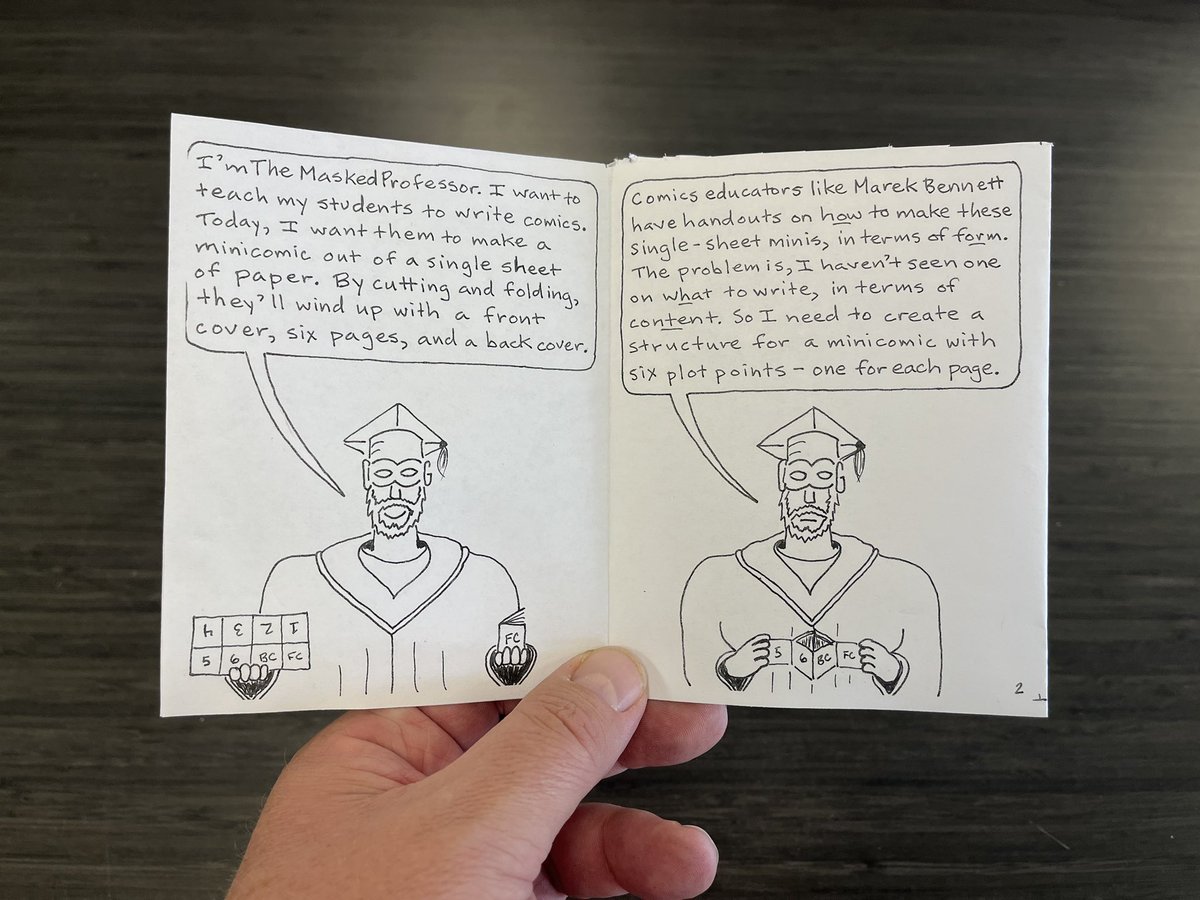 I'm The Masked Professor. I want to
teach my students to write comics.
Today, I want them to make a
minicomic out of a single sheet
of paper. By cutting and folding,
they'll wind up with a front
cover, six pages, and a back cover.
4 3 2 1
5 6 BC FC
FC
Comics educators like Marek Bennett
have handouts on how to make these
single-sheet minis, in terms of form.
The problem is, I haven't seen one
on what to write, in terms of
content. So I need to create a
structure for a minicomic with
six plot points - one for each page.
5 6 BC FC
2